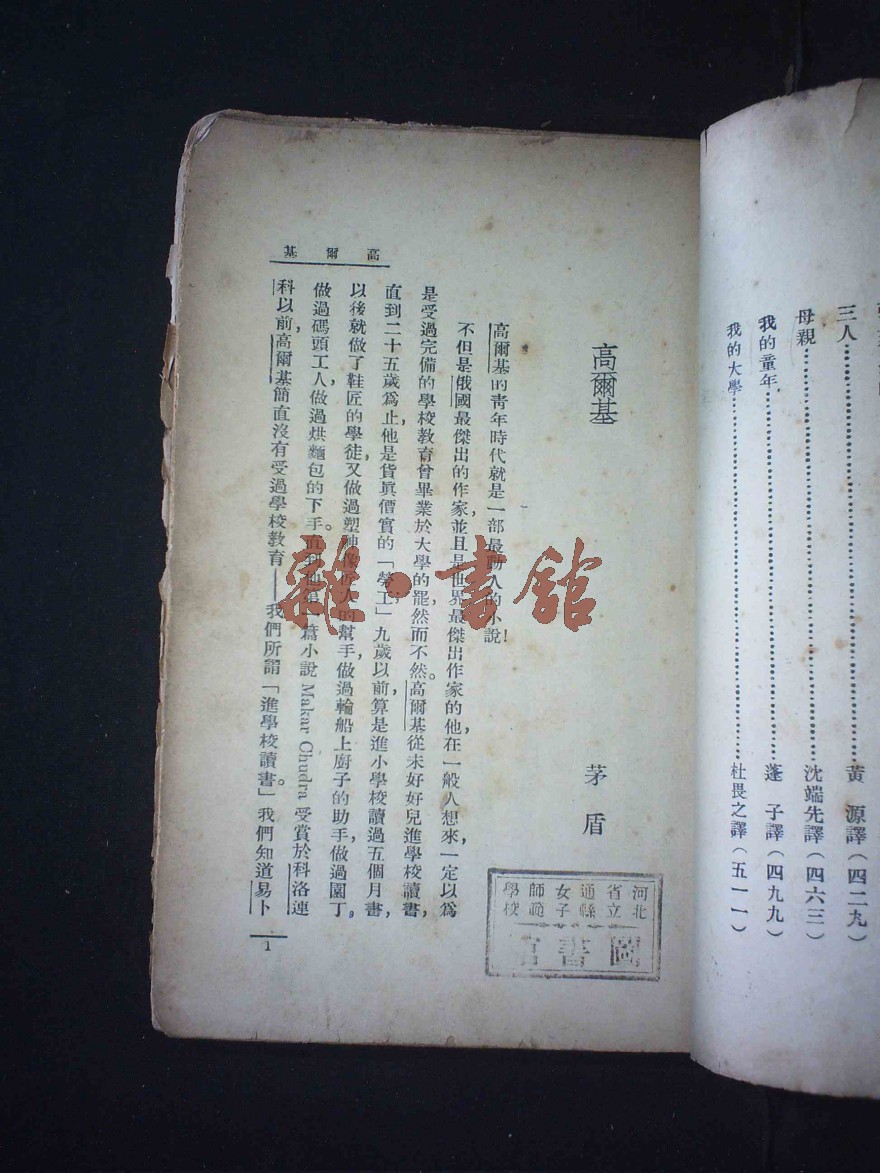 三人……黃 源譯(四二九)
母親……沈端先譯(四六三)
我的童年……蓬 子譯(四九九)
我的大學……杜畏之譯(五一一)
高爾基
茅盾
高爾基的靑年時代就是一部最動人的小說!
不但是俄國最傑出的作家,並且是世界最傑出作家的他,在一般人想來,一定以爲
是受過完備的學校敎育曾畢業於大學的罷,然而不然。高爾基從未好好兒進學校讀書,
直到二十五歲爲止,他是貨眞價實的「勞工」,九歲以前,算是進小學校讀過五個月書,
以後就做了鞋匠的學徒,又做過塑神像匠人的幫手,做過輪船上廚子的助手,做過園丁,
做過碼頭工人,做過烘麵包的下手。直到他第一篇小說 Makar Chudra 受賞於科洛連
科以前,高爾基簡直沒有受過學校敎育——我們所謂「進學校讀書」。我們知道易卜
高爾基
1
河北省立通縣女子師範學校
圖書館
雜·書館